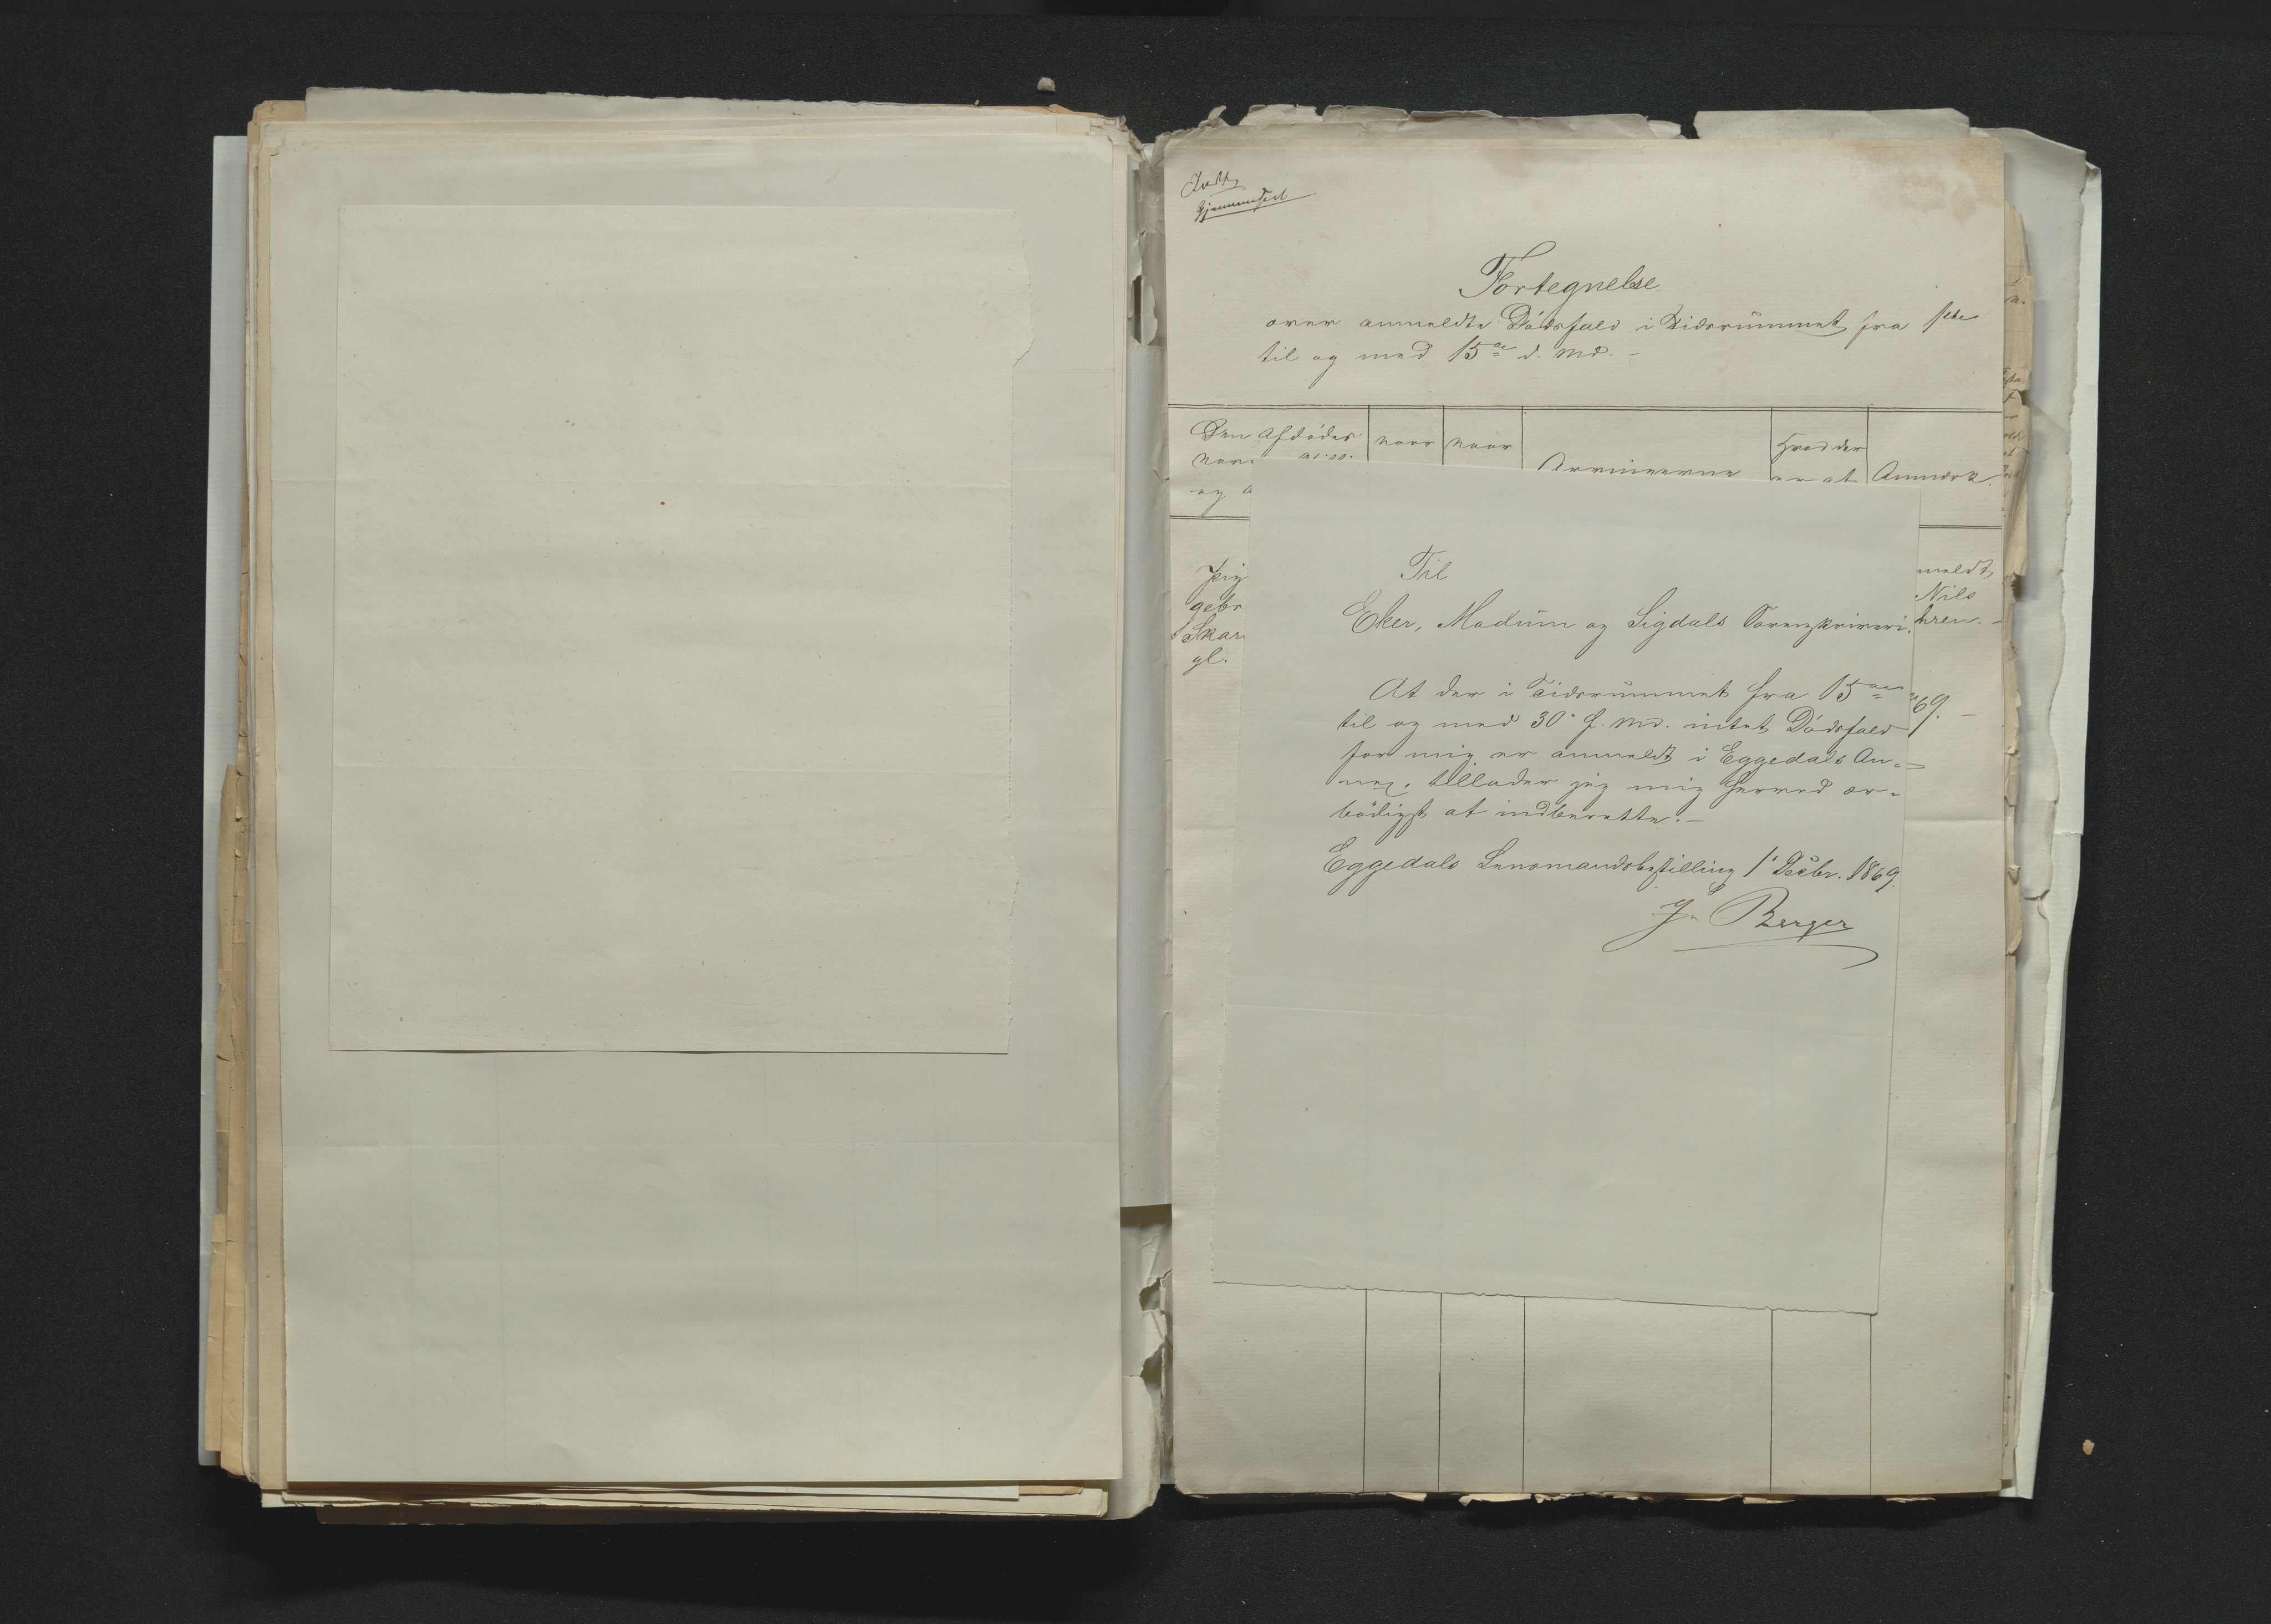 Gjennemseet
Fortegnelse
over anmeldte Dødsfald i Tidsrummet fra 1ste
til og med 15de d. Md. -
Den Afdødes
Navn
naar
naar
Arvingerne
Hvad der
er at
Anmærk.
og
Pig
gebr
Skar
gl.
meldt
Nils
hren. -
69. -
Til
Eker, Modum og Sigdals Sorenskriveri.
At der i Tidsrummet fra 15de
til og med 30' f. Md. intet Dødsfald
for mig er anmeldt i Eggedals An-
nex, tillader jeg mig herved ær-
bödigst at indberette. -
Eggedals Lensmandsbestilling 1' Decbr. 1869.
J. Berger